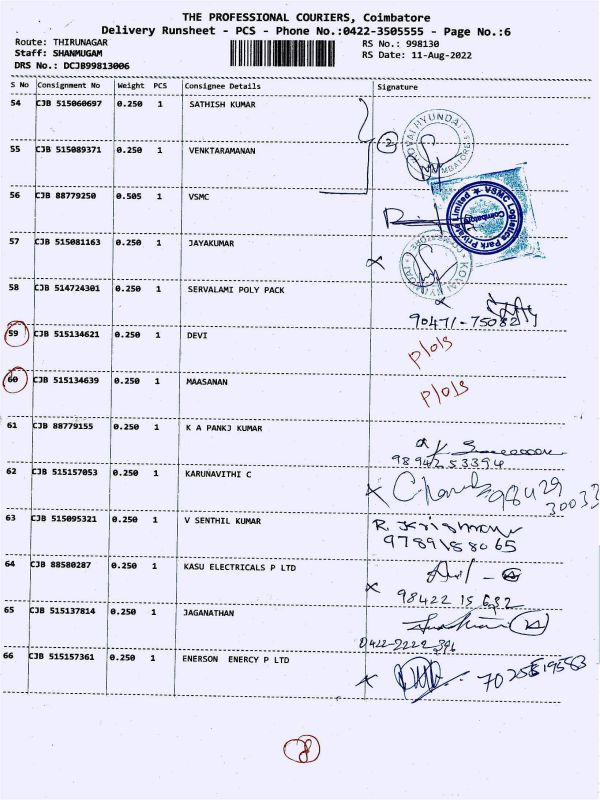 THE PROFESSIONAL COURIERS, Coimbatore
Delivery Runsheet - PCS - Phone No.:0422-3505555 - Page No.:6
Route: THIRUNAGAR
Staff: SHANMUGAM
DRS No.: DCJB99813006
RS No.: 998130
RS Date: 11-Aug-2022
S No Consignment No Weight PCS Consignee Details Signature
54 CJB 515060697 0.250 1 SATHISH KUMAR
2
KOVAI HYUNDAI
COIMBATORE
55 CJB 515089371 0.250 1 VENKTARAMANAN
56 CJB 88779250 0.505 1 VSMC
VSMC Logistics Park Private Limited
Coimbatore
57 CJB 515081163 0.250 1 JAYAKUMAR
KOVAI HYUNDAI
58 CJB 514724301 0.250 1 SERVALAMI POLY PACK
90471-75082
59 CJB 515134621 0.250 1 DEVI
60 CJB 515134639 0.250 1 MAASANAN
61 CJB 88779155 0.250 1 K A PANKJ KUMAR
9894253394
62 CJB 515157053 0.250 1 KARUNAVITHI C
98429
30033
63 CJB 515095321 0.250 1 V SENTHIL KUMAR
R. Krishnan
9789188065
64 CJB 88580287 0.250 1 KASU ELECTRICALS P LTD
98422 15632
65 CJB 515137814 0.250 1 JAGANATHAN
0422-2222 396
66 CJB 515157361 0.250 1 ENERSON ENERCY P LTD
8